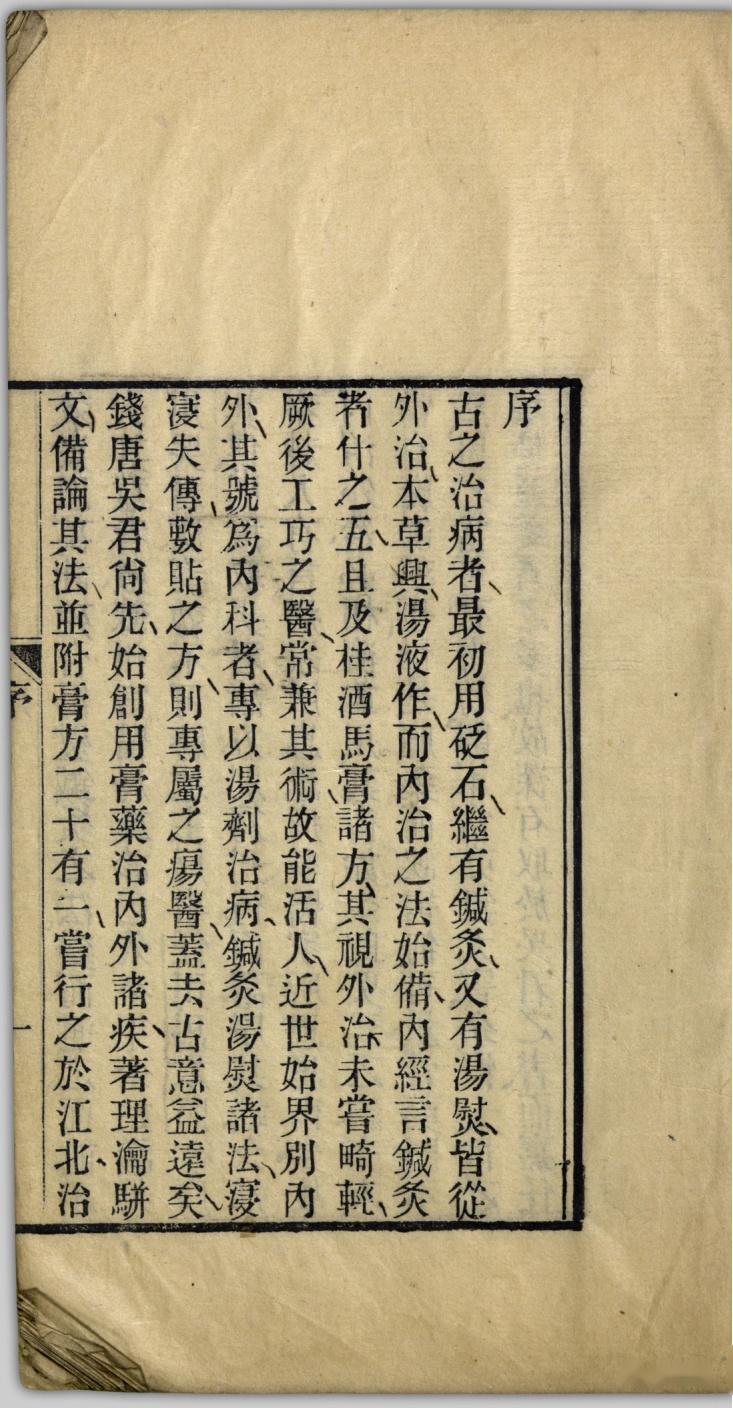 序
古之治病者最初用砭石繼有鍼灸又有湯熨皆從
外治本草興湯液作而內治之法始備內經言鍼灸
者什之五且及桂酒馬膏諸方其視外治未嘗畸輕
厥後工巧之醫常兼其術故能活人近世始界別內
外其號爲內科者專以湯劑治病鍼灸湯熨諸法寖
寖失傳敷貼之方則專屬之瘍醫蓋去古意益遠矣
錢唐吳君尚先始創用膏藥治內外諸疾著理瀹駢
文備論其法並附膏方二十有一嘗行之於江北治
序
一